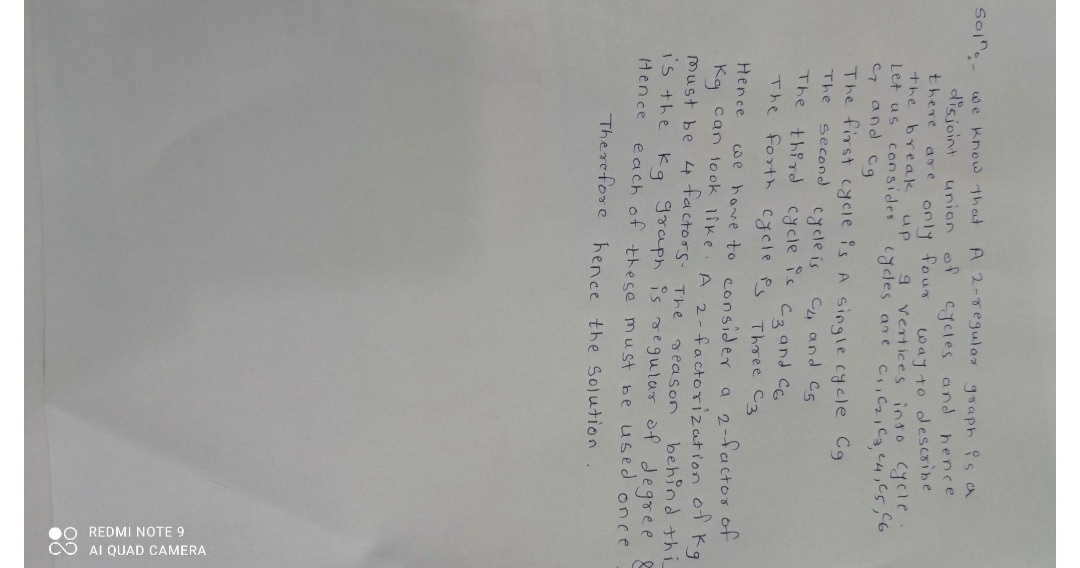 Solⁿ:- we know that A 2-regular graph is a
disjoint union of cycles and hence
there are only four way to describe
the break up 9 vertices into cycle.
Let us consider cycles are C1, C2, C3, C4, C5, C6
C7 and C9
The first cycle is A single cycle C9
The second cycle is C4 and C5
The third cycle is C3 and C6
The forth cycle is Three C3
Hence we have to consider a 2-factor of
K9 can look like. A 2-factorization of K9
must be 4 factors. The reason behind thi
is the K9 graph is regular of degree 8
Hence each of these must be used once.
Therefore hence the solution.
REDMI NOTE 9
AI QUAD CAMERA